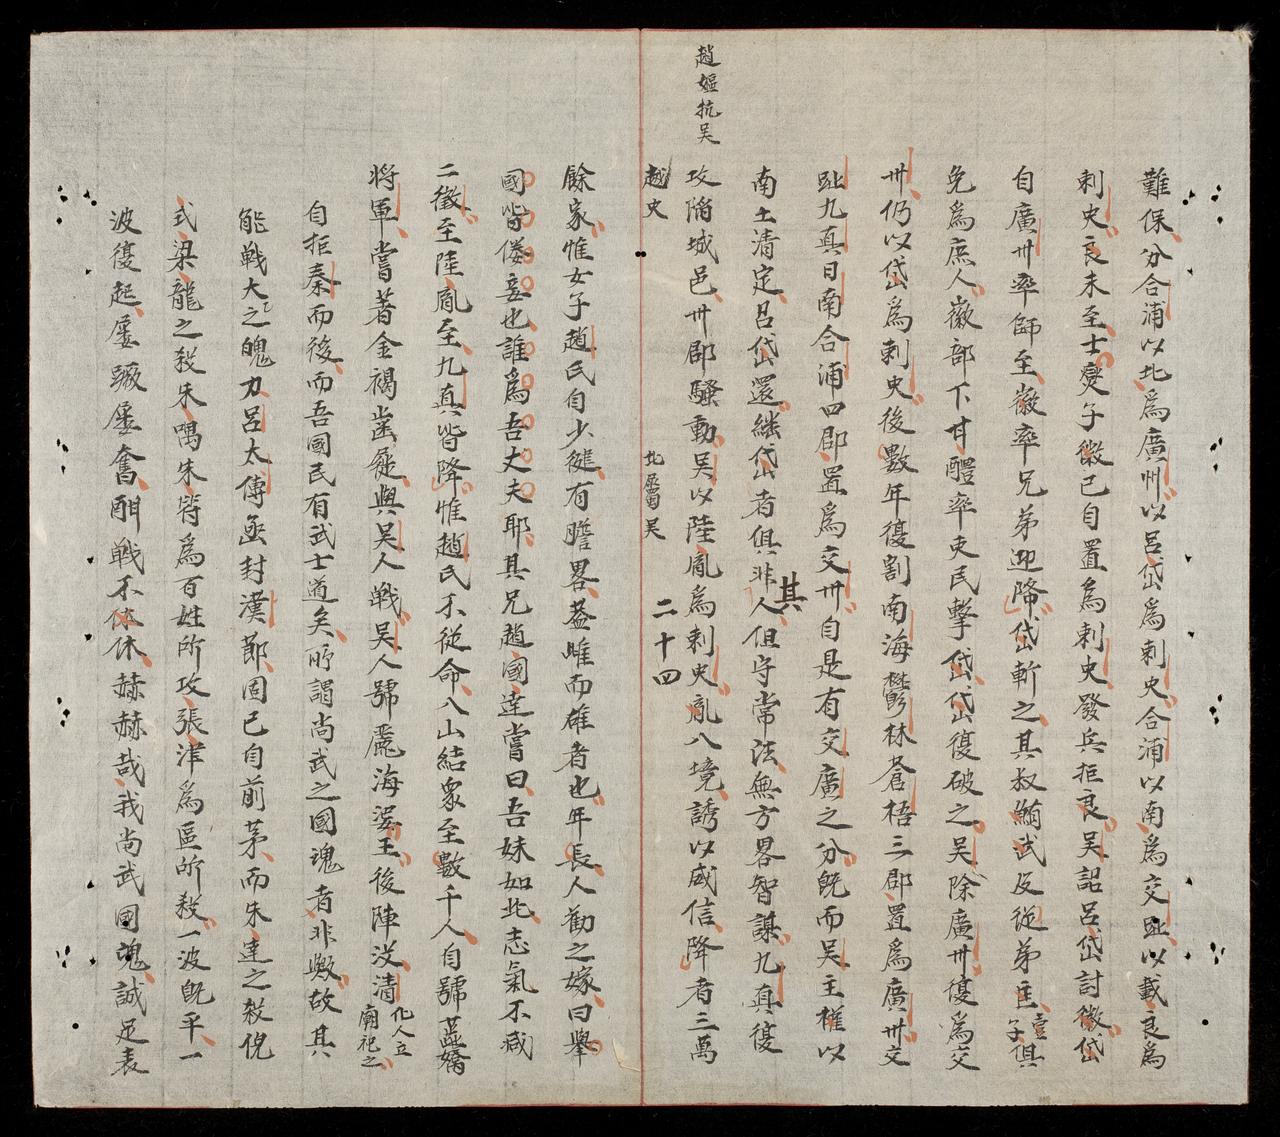 難保分合浦以北爲廣州以呂岱爲刺史合浦以南爲交趾以戴良爲
刺史良未至士燮子徽已自置爲刺史發兵拒良吳詔呂岱討徽岱
自廣卅率師至徽率兄弟迎降岱斬之其叔䵋武反從弟匡壹子俱
免爲庶人徽部下甘醴率吏民擊岱岱復破之吳除廣卅復爲交
卅仍以岱爲刺史後數年復割南海鬱林蒼梧三郡置爲廣卅交
趾九真日南合浦四郡置爲交卅自是有交廣之分旣而吳主權以
南土清定呂岱還継岱者俱非其人但守常法無方畧智謀九真復
趙嫗抗吳
攻陷城邑卅郡騷動吳以陸胤爲刺史胤入境誘以威信降者三萬
越史
北屬蜀吳
二十四
餘家惟女子趙氏自少健有膽畧葢雌而雄者也年長人勸之嫁曰擧
國皆僂妾也誰爲吾丈夫耶其兄趙國達嘗曰吾妹如此志氣不减
二徵至陸胤至九真皆降惟趙氏不從命入山結衆至數千人自號蕋嬌
將軍嘗著金褐齒屐與吳人戰吳人號麗海婆王後陣没清化人立廟祀之
自拒秦而後而吾國民有武士道矣所謂尚武之國魂者非歟故其
能戰大之魄力呂太傅亟封漢節固已自前茅而朱達之殺倪
式梁龍之殺朱喁朱符爲百姓所攻張津爲區所殺一波旣平一
波復起屢蹶屢奮酣戰不休休赫赫哉我尚武國魂誠足表